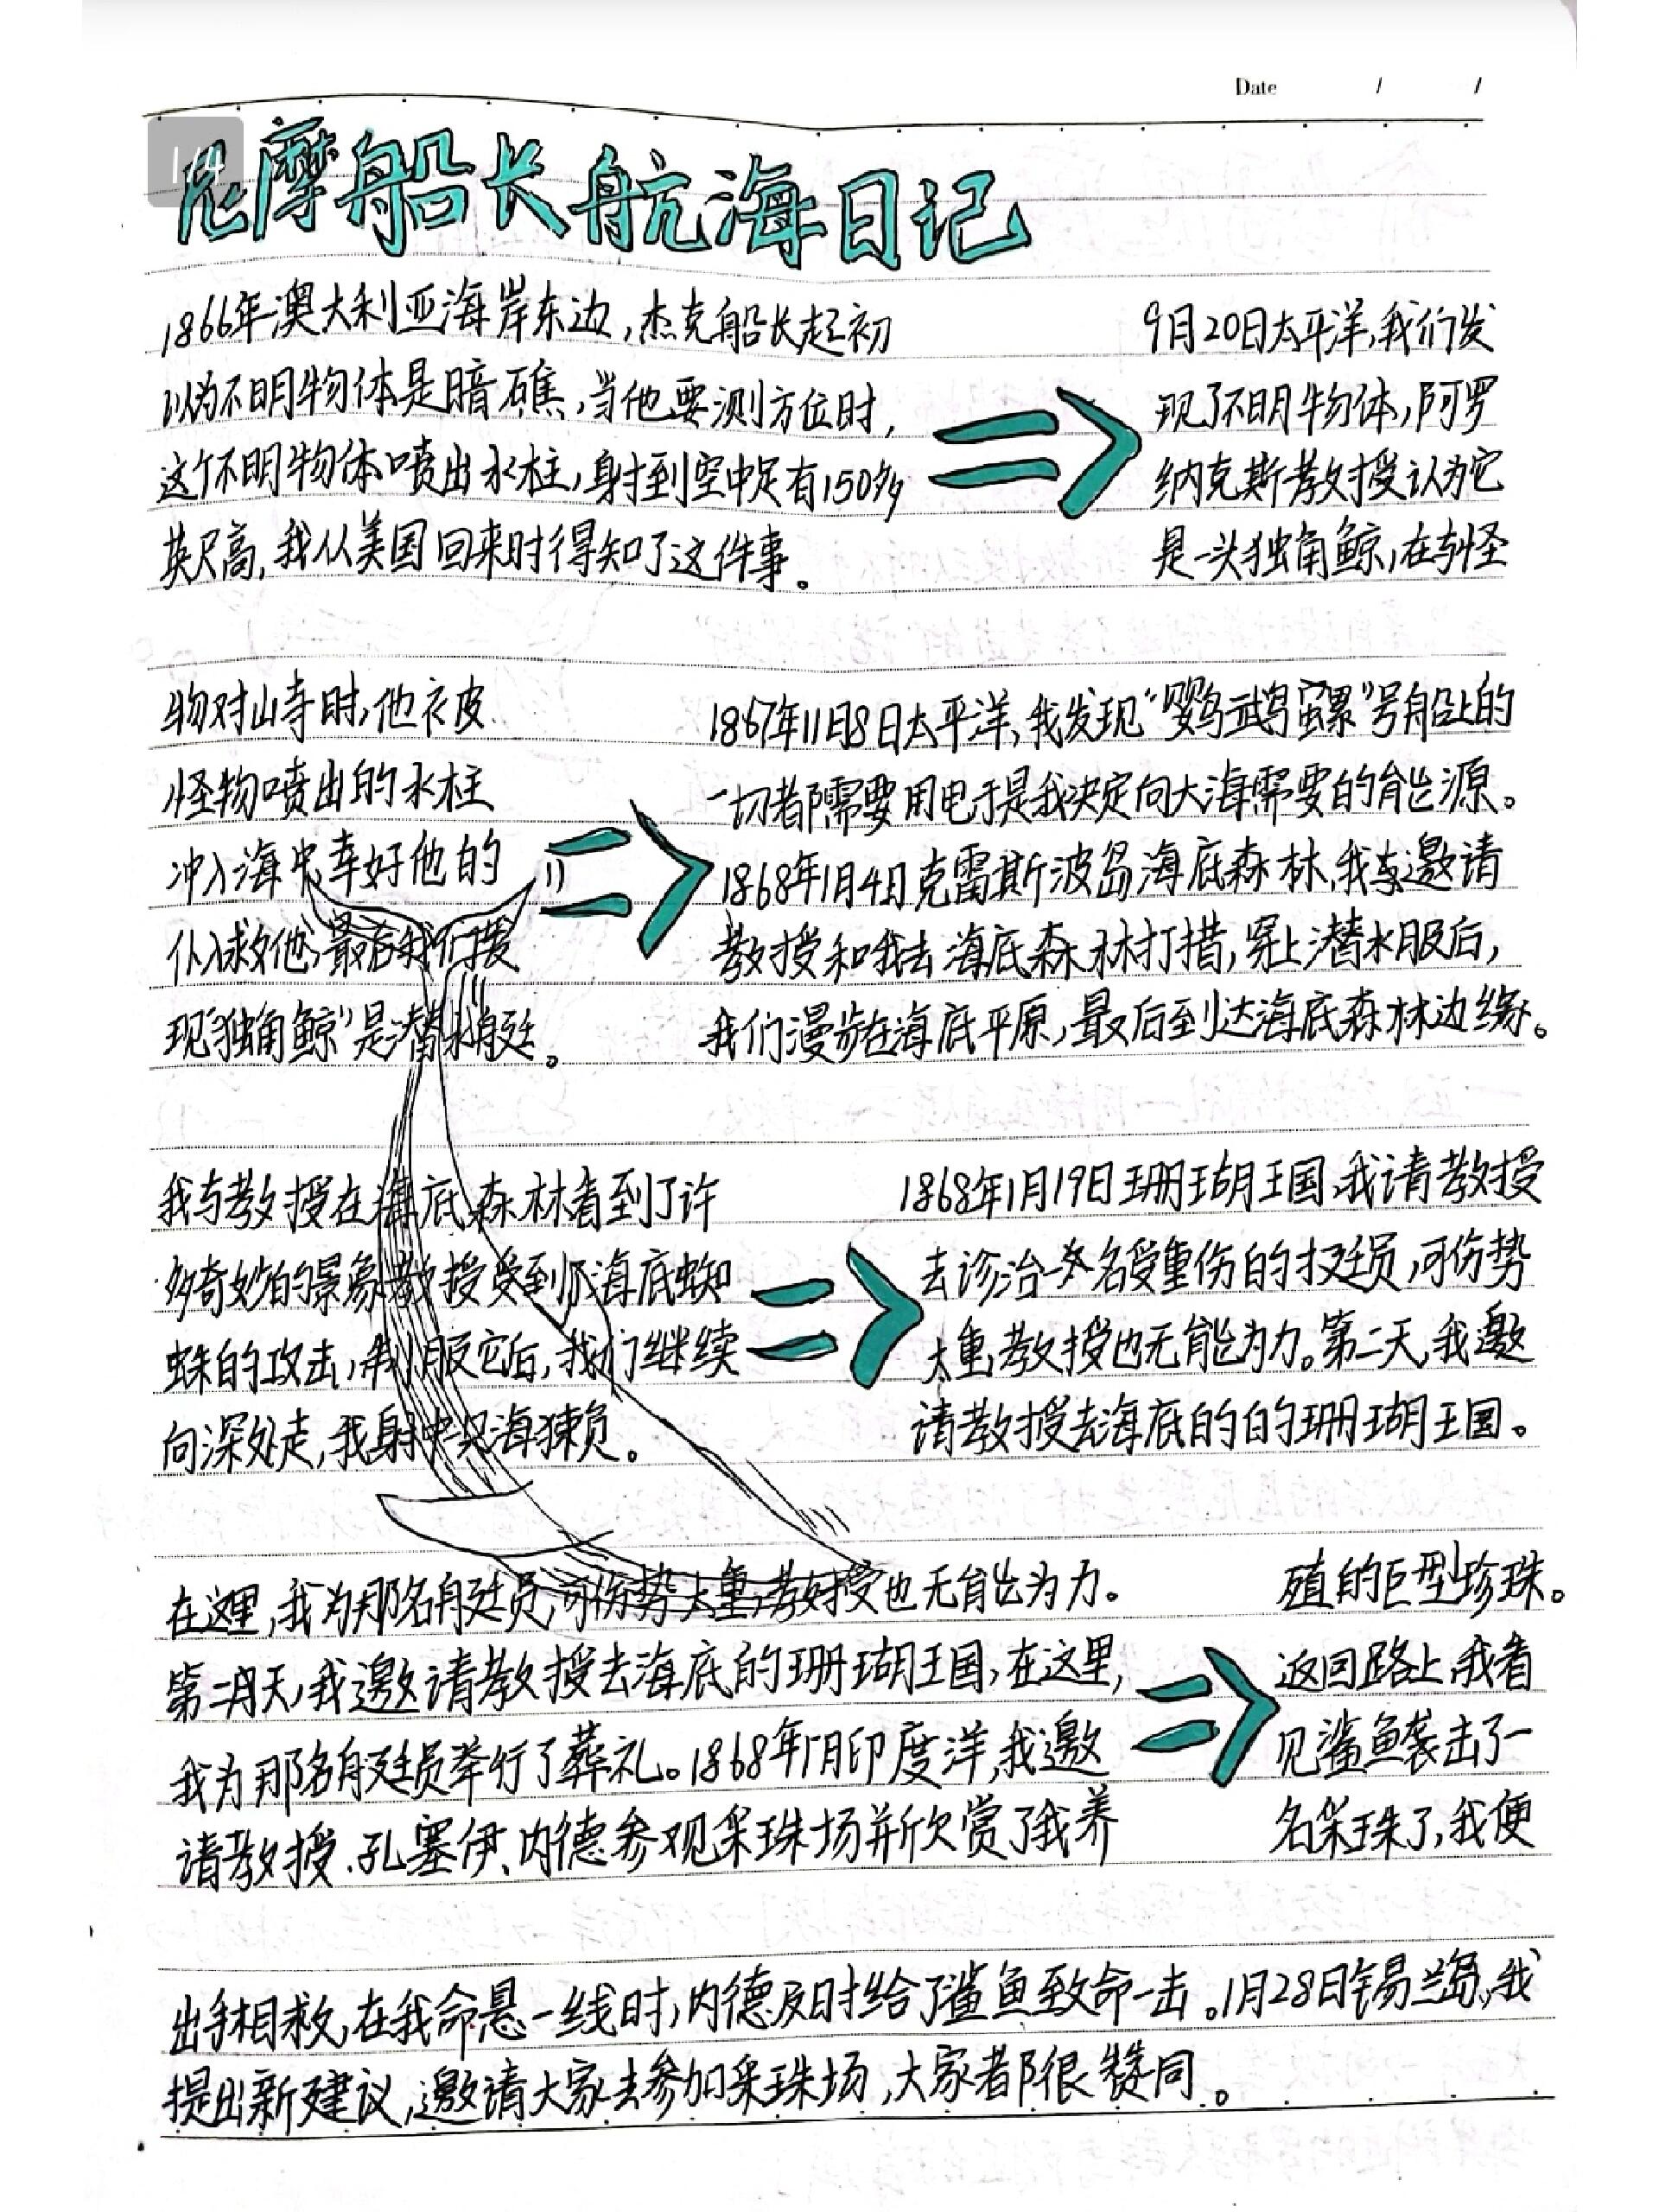 Date / /
1/4
尼摩船长航海日记
1866年澳大利亚海岸东边,杰克船长起初
以为不明物体是暗礁,当他要测方位时,
这个不明物体喷出水柱,射到空中足有150多
英尺高,我从美国回来时得知了这件事。
9月20日太平洋,我们发
现了不明物体,阿罗
纳克斯教授认为它
是一头独角鲸,在与怪
物对峙时,他被
怪物喷出的水柱
冲入海中幸好他的
仆人救他,最后我们发
现"独角鲸"是潜水艇。
1867年11月8日太平洋,我发现"鹦鹉螺"号船上的
一切都需要用电于是我决定向大海需要的能源。
1868年1月4日克雷斯波岛海底森林,我邀请
教授和我去海底森林打措,穿上潜水服后,
我们漫步在海底平原,最后到达海底森林边缘。
我与教授在海底森林看到了许
多奇妙的景象教授受到了海底蜘
蛛的攻击,制服它后,我们继续
向深处走,我射中只海獭。
1868年1月19日珊瑚王国,我请教授
去诊治一名受重伤的艇员,可伤势
太重,教授也无能为力。第二天,我邀
请教授去海底的的珊瑚王国。
在这里,我为那名艇员,可伤势太重,教授也无能为力。
第二天,我邀请教授去海底的珊瑚王国,在这里,
我为那名艇员举行了葬礼。1868年1月印度洋,我邀
请教授、孔塞伊、内德参观采珠场并欣赏了我养
殖的巨型珍珠。
返回路上,我看
见鲨鱼袭击了一
名采珠了,我便
出手相救,在我命悬一线时,内德及时给了鲨鱼致命一击。1月28日锡兰岛,我
提出新建议,邀请大家去参加采珠场,大家都很赞同。